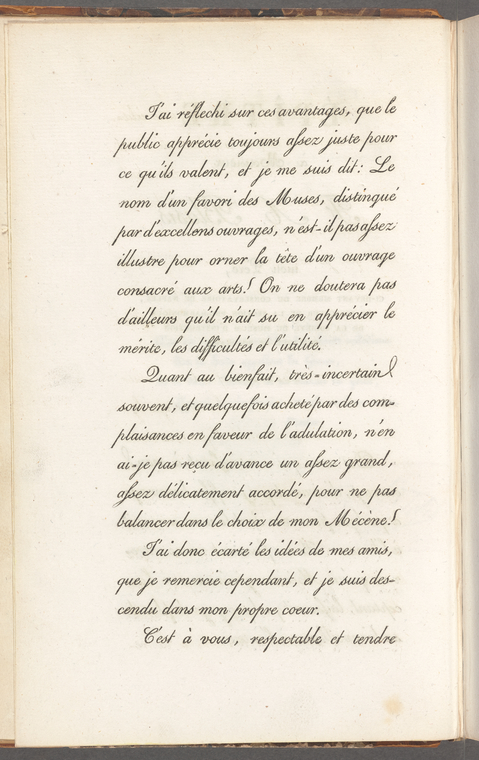 J'ai réflechi sur ces avantages, que le
public apprécie toujours aſsez juste pour
ce qu'ils valent, et je me suis dit: Le
nom d'un favori des Muses, distingué
par d'excellens ouvrages, n'est-il pas aſsez
illustre pour orner la tête d'un ouvrage
consacré aux arts! On ne doutera pas
d'ailleurs qu'il n'ait su en apprécier le
mérite, les difficultés et l'utilité.
Quant au bienfait, très-incertain
souvent, et quelquefois acheté par des com-
plaisances en faveur de l'adulation, n'en
ai-je pas reçu d'avance un aſsez grand,
aſsez délicatement accordé, pour ne pas
balancer dans le choix de mon Mécène!
J'ai donc écarté les idées de mes amis,
que je remercie cependant, et je suis des-
cendu dans mon propre coeur.
C'est à vous, respectable et tendre